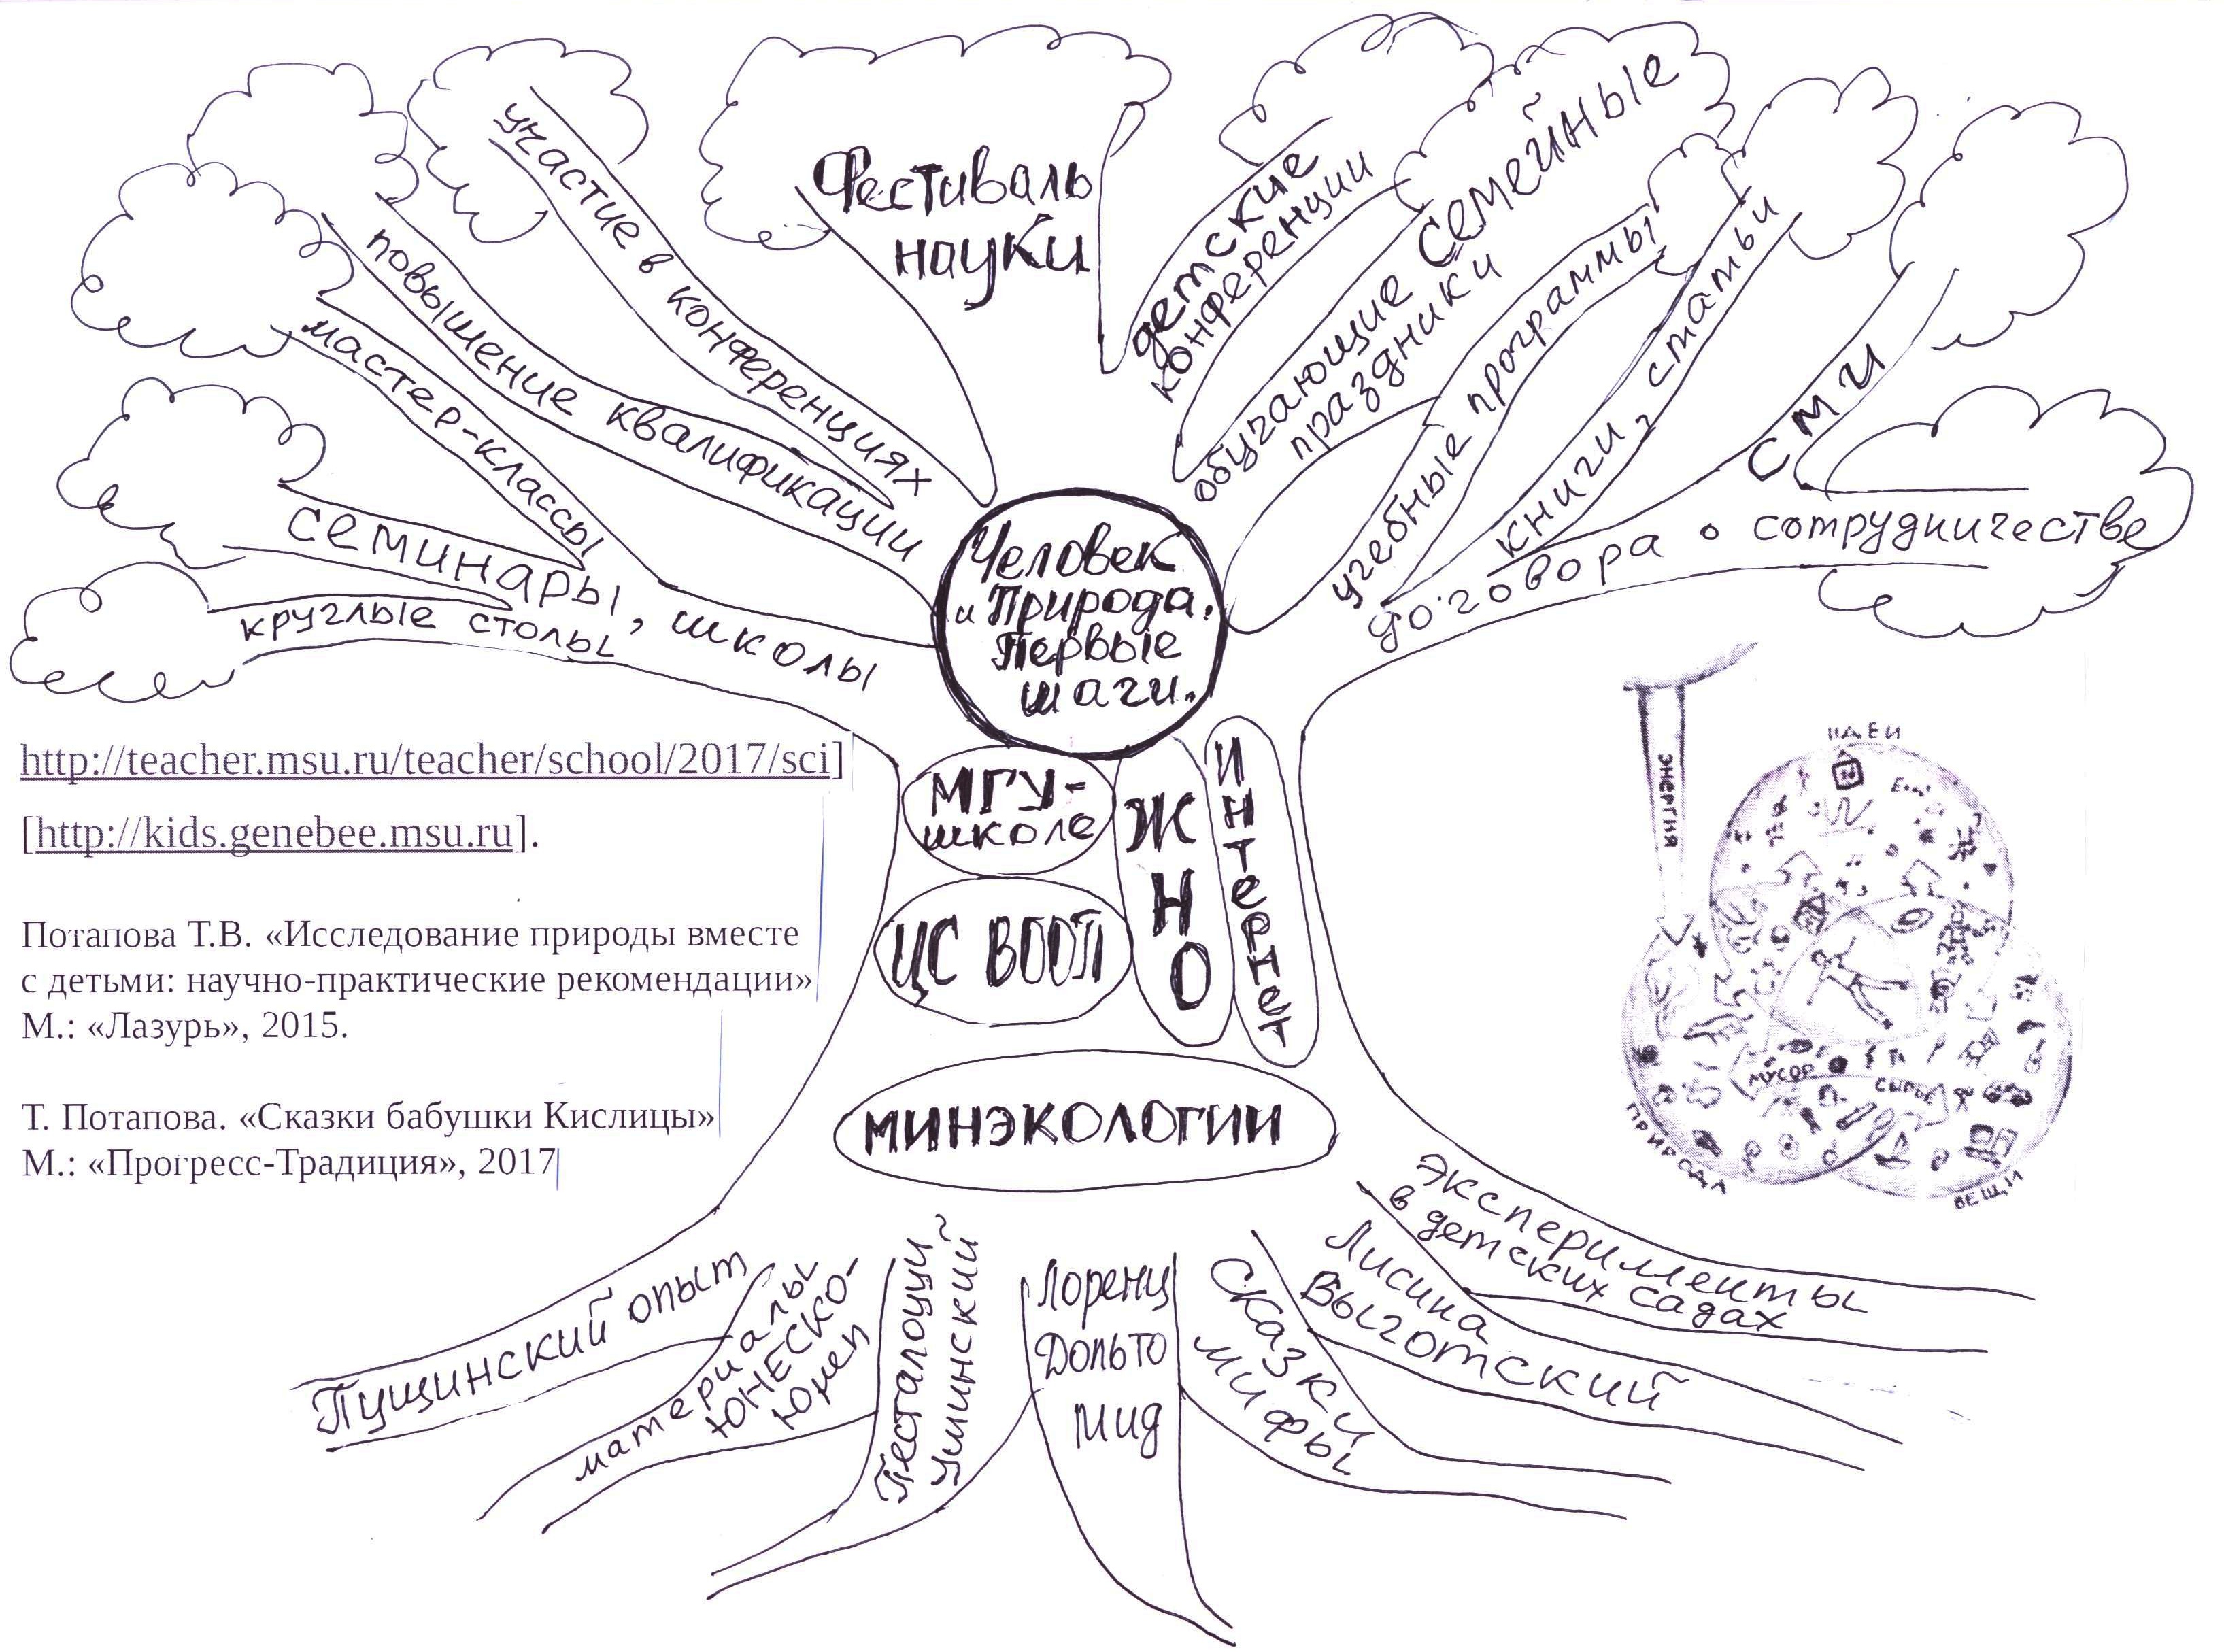 участие в конференциях
повышение квалификации
мастер-классы
семинары, школы
круглые столы
Фестиваль
науки
детские
конференции
обучающие семейные
праздники
учебные программы
книги, статьи
СМИ
договора о сотрудничестве
Человек
и Природа.
Первые
шаги.
МГУ-
школе
ЦС ВООП
ЖНО
Интернет
МИНЭКОЛОГИИ
http://teacher.msu.ru/teacher/school/2017/sci]
[http://kids.genebee.msu.ru].
Потапова Т.В. «Исследование природы вместе
с детьми: научно-практические рекомендации»
М.: «Лазурь», 2015.
Т. Потапова. «Сказки бабушки Кислицы»
М.: «Прогресс-Традиция», 2017
ЭНЕРГИЯ
ИДЕИ
МУСОР
СЫРЬЕ
ПРИРОДА
ВЕЩИ
Пущинский опыт
материалы
ЮНЕСКО-
Юнеп
Песталоцци
Ушинский
Лоренц
Дольто
Мид
Сказки
мифы
Лисина
Выготский
Эксперименты
в детских садах